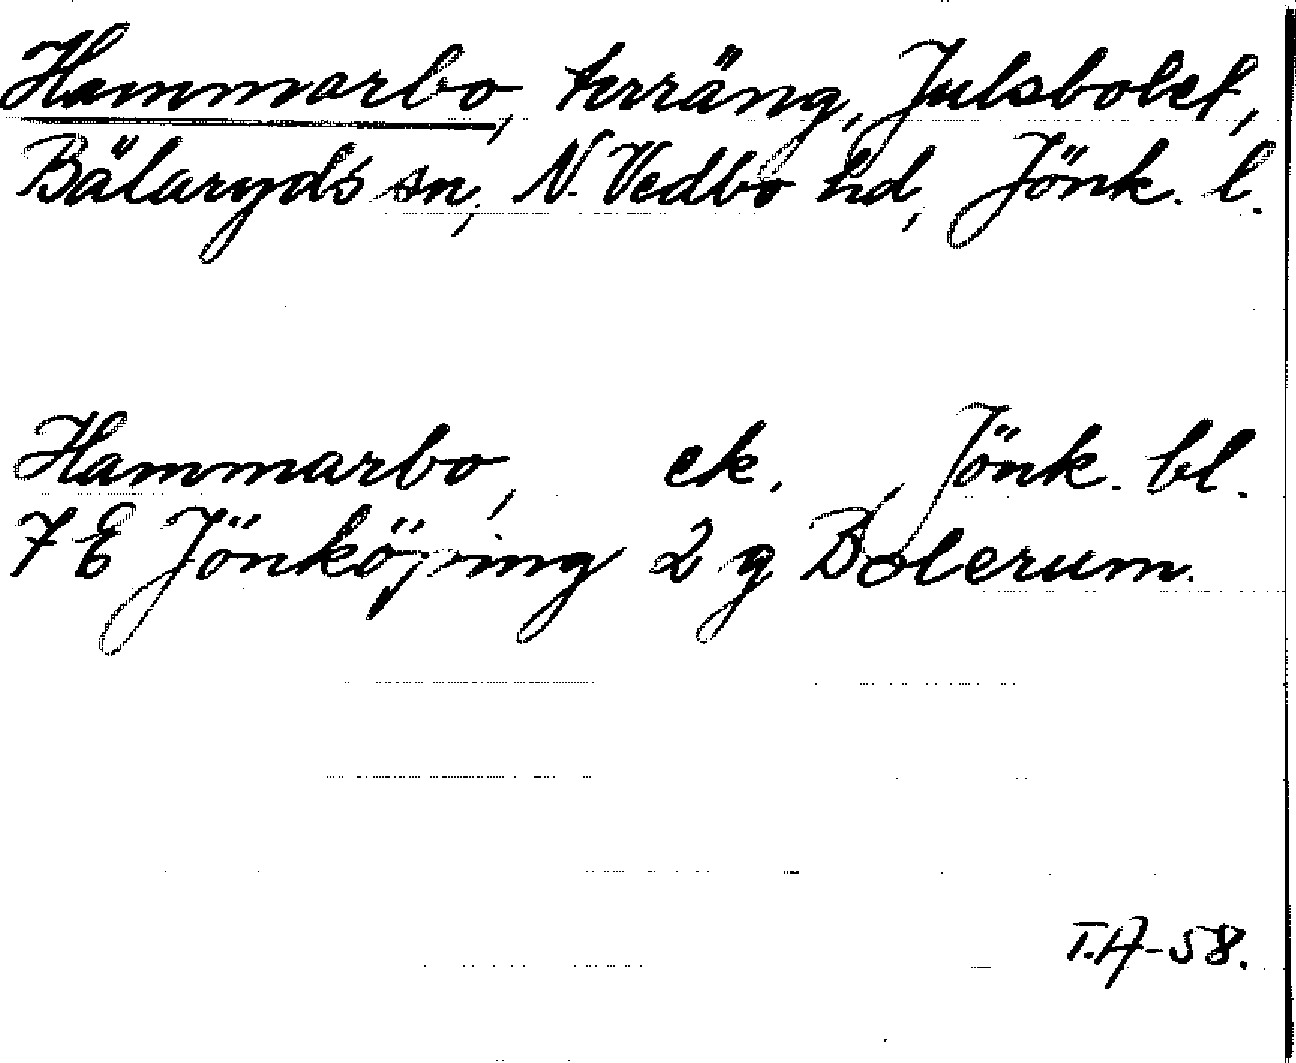 Hammarbo, terräng, Julsbolet,
Bälaryds sn, N. Vedbo hd, Jönk. l.
Hammarbo, ek. , Jönk. bl.
7 E Jönköping 2 g Bolerum.
T.A-58.